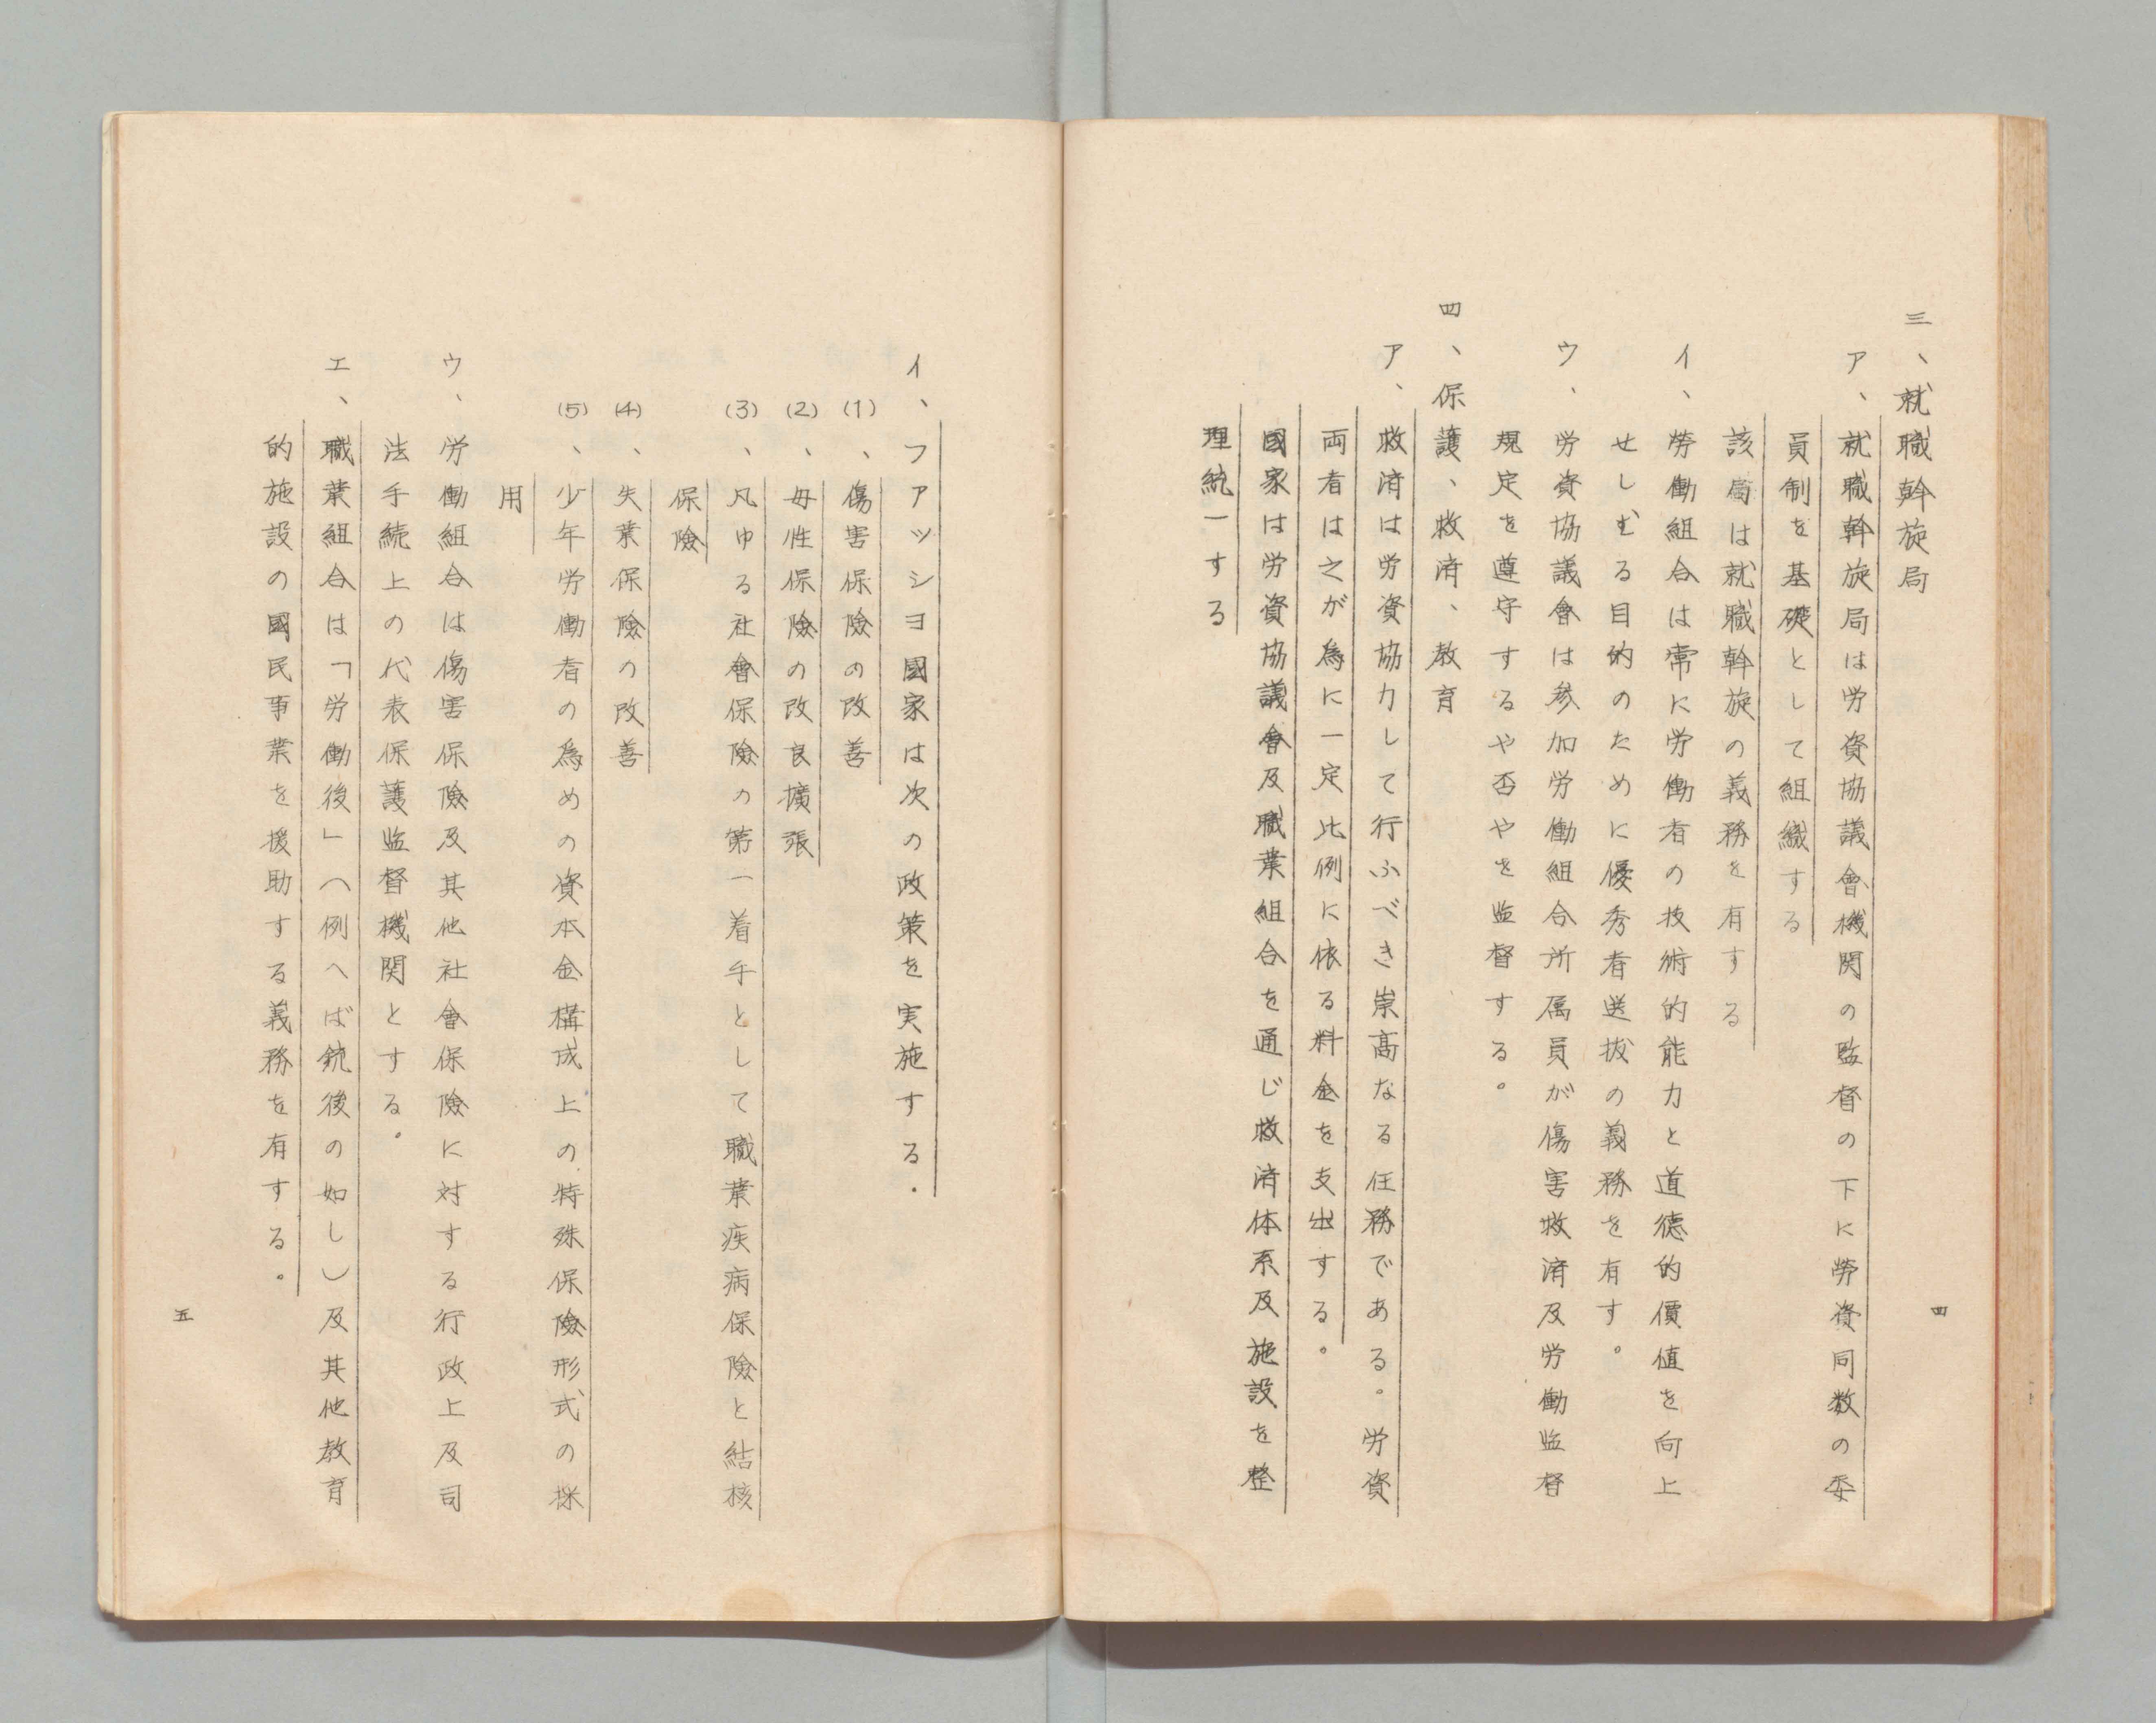 三、就職幹旋局
ア、就職幹旋局は労資協議會機関の監督の下に勞資同数の委
員制を基礎として組織する
該局は就職幹旋の義務を有する
イ、勞働組合は常に労働者の技術的能力と道徳的價値を向上
せしむる目的のために優秀者選抜の義務を有す。
ウ、労資協議會は参加労働組合所属員が傷害救済及労働監督
規定を遵守するや否やを监督する。
四、保護、救済、教育
ア、救済は労資協力して行ふべき崇高なる任務である。労資
両者は之が為に一定比例に依る料金を支出する。
國家は労資協議會及職業組合を通じ救済体系及施設を整
理統一する
四
イ、フアツシヨ國家は次の政策を実施する.
(1)、傷害保険の改善
(2)、母性保険の改良擴張
(3)、凡ゆる社會保険の第一着手として職業疾病保険と結核
保險
(4)、失業保険の改善
(5)、少年労働者の為めの資本金構成上の特殊保險形式の採
用
ウ、労働組合は傷害保險及其他社會保險に対する行政上及司
法手続上の代表保護监督機関とする。
エ、職業組合は「労働後」(例へば銃後の如し)及其他教育
的施設の國民事業を援助する義務を有する。
五